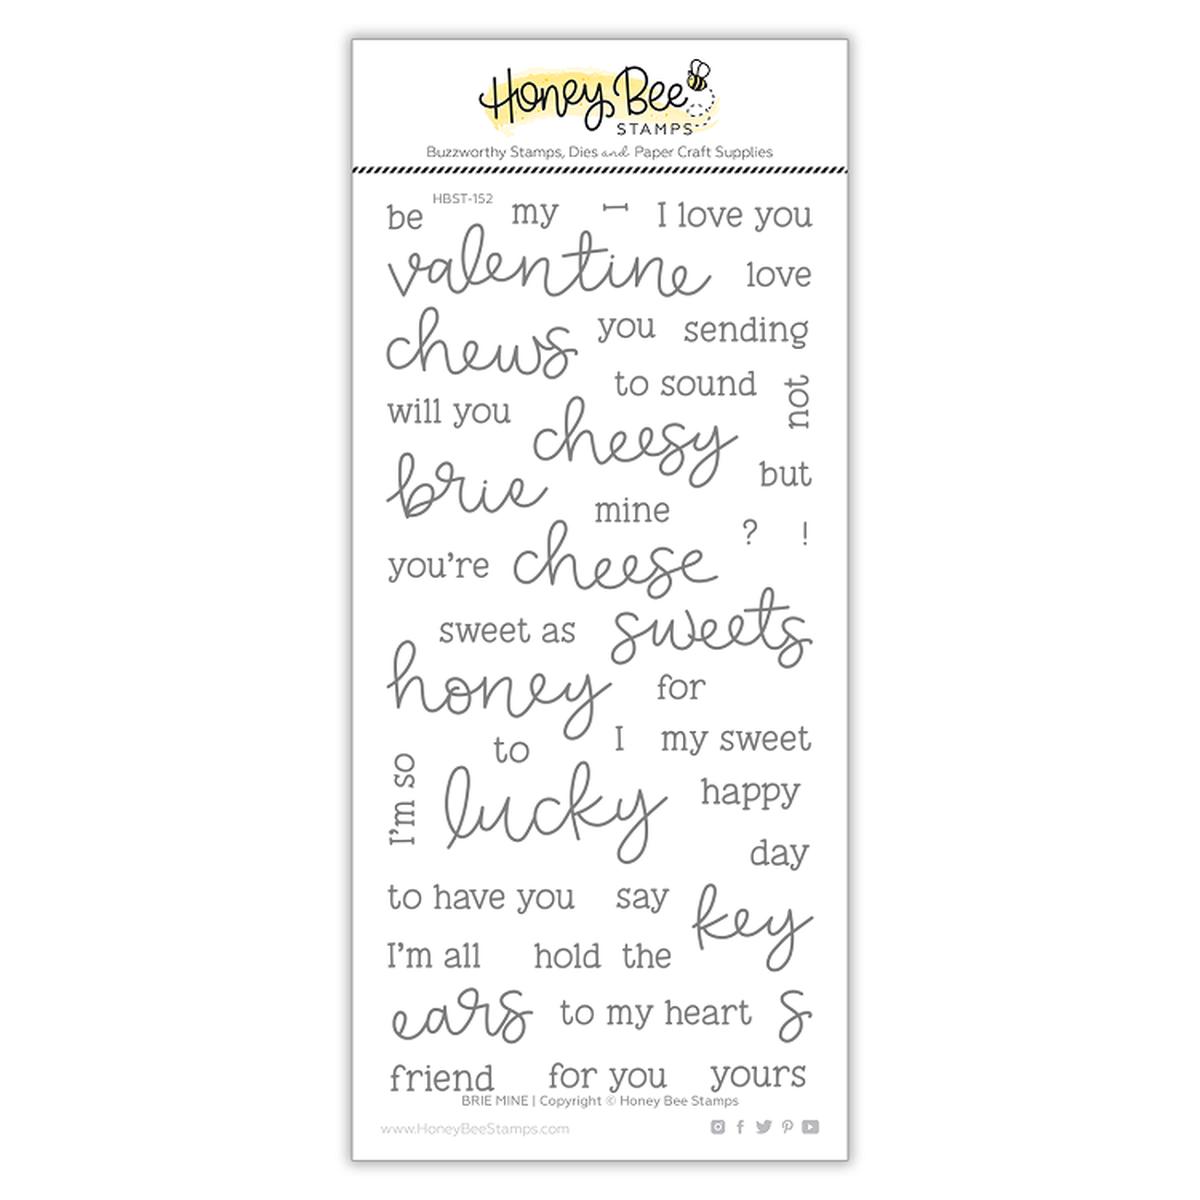 Honey Bee
STAMPS
Buzzworthy Stamps, Dies and Paper Craft Supplies
HBST-152
be my I I love you
valentine love
chews you sending
to sound not
will you cheesy
brie but
mine
? !
you're cheese
sweet as sweets
honey for
to I my sweet
I'm so lucky happy
day
to have you say key
I'm all hold the
ears to my heart s
friend for you yours
BRIE MINE | Copyright © Honey Bee Stamps
www.HoneyBeeStamps.com